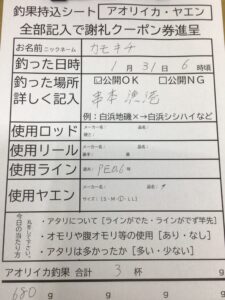 釣果持込シート アオリイカ・ヤエン
全部記入で謝礼クーポン券進呈
お名前 ニックネーム カモキチ
釣った日時 1月31日6時頃
釣った場所 □公開OK □公開NG
詳しく記入 串本漁港
例：白浜地磯×→白浜シシハイなど
使用ロッド メーカー名 品名
使用リール メーカー名 品名
使用ライン PE0.6号
使用ヤエン メーカー名 品名
サイズ：[S・M・L・LL]
今日の当たり方
・アタリについて [ラインがでた・ラインがでず竿先]
・オモリや腹オモリ等の使用 [あり・なし]
・アタリは多かったか [多い・少ない]
アオリイカ釣果 合計 3 杯 g
680 g g g